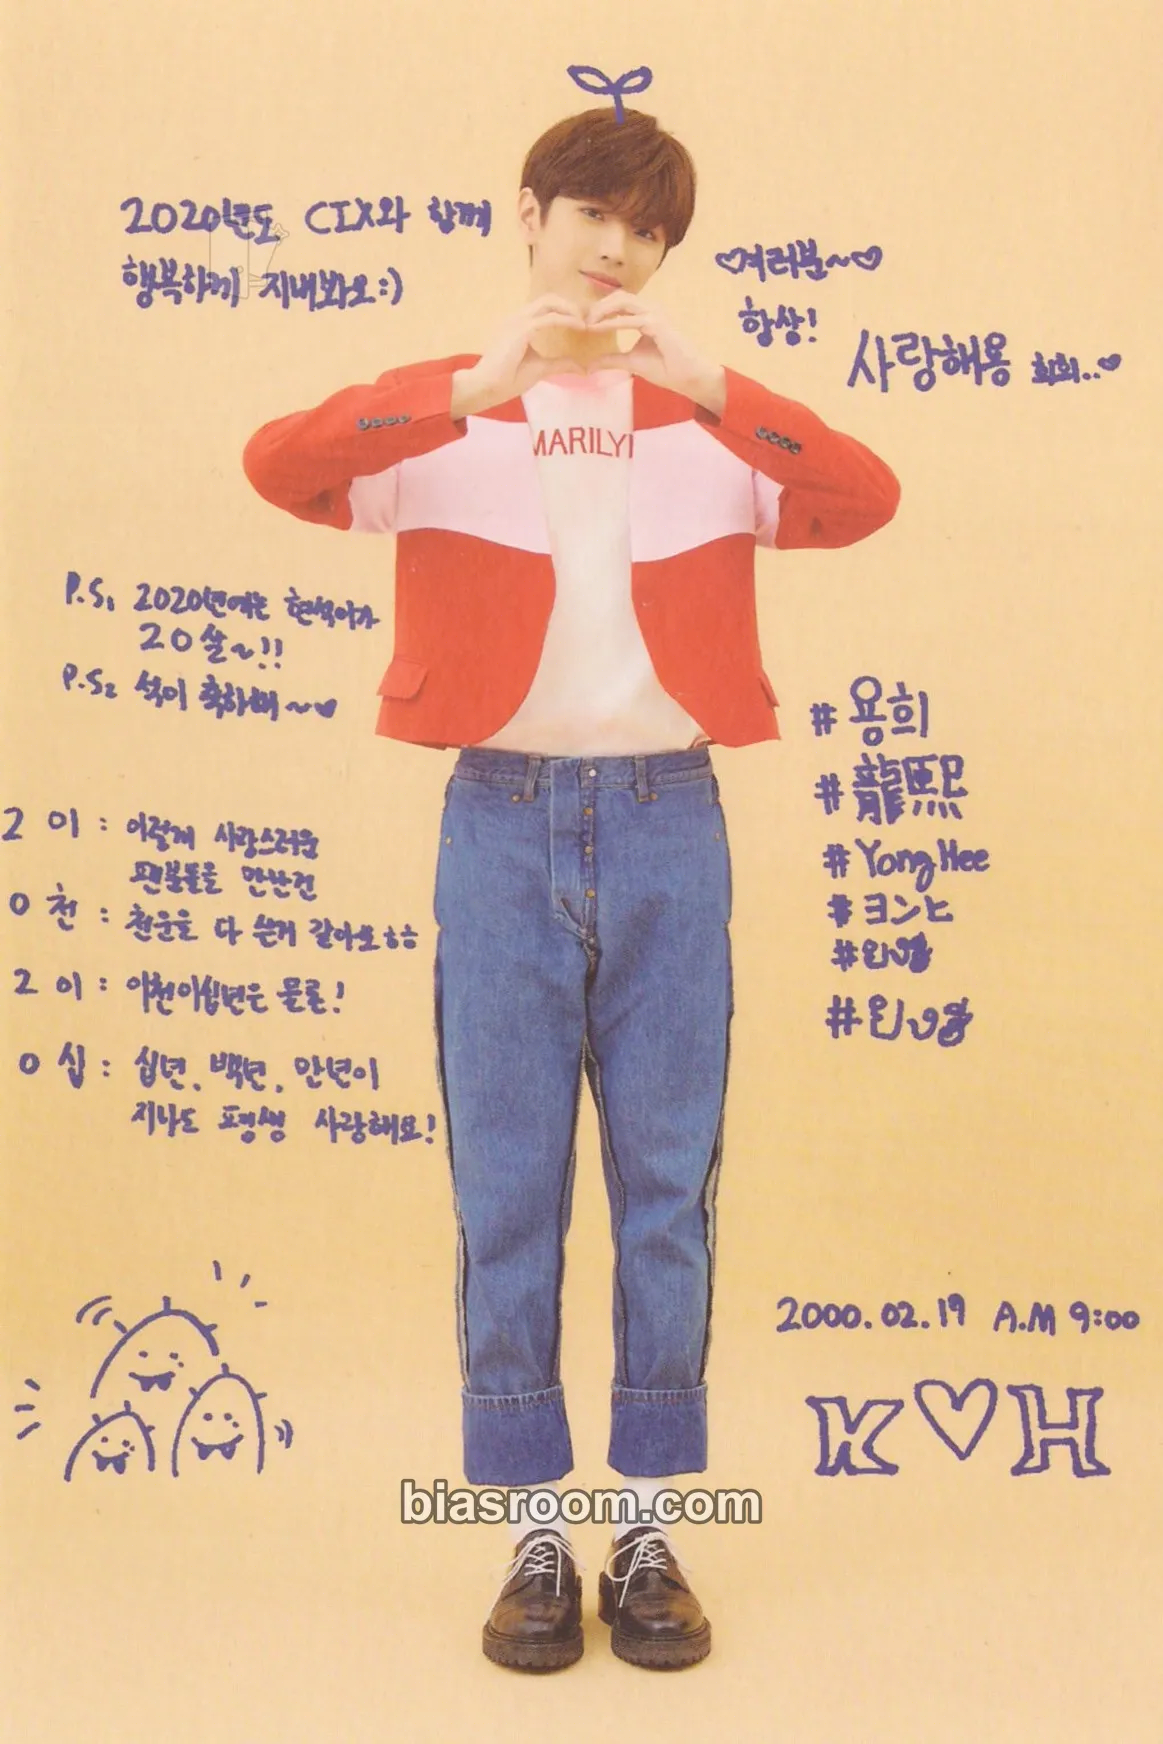 2020년도 CIX와 함께
행복하게 지내봐요:)
♡여러분~♡
항상!
사랑해용 희희..♡
MARILY
P.S₁ 2020년에는 현석이가
20살~!!
P.S₂ 석이 축하해~♥
2 이 : 이렇게 사랑스러운
팬분들을 만난건
0 천 : 천운을 다 쓴거 같아요ㅎㅎ
2 이 : 이천이십년은 물론!
0 십 : 십년, 백년, 만년이
지나도 평생 사랑해요!
#용희
#龍熙
#YongHee
#ヨンヒ
2000.02.19 A.M 9:00
K♡H
biasroom.com